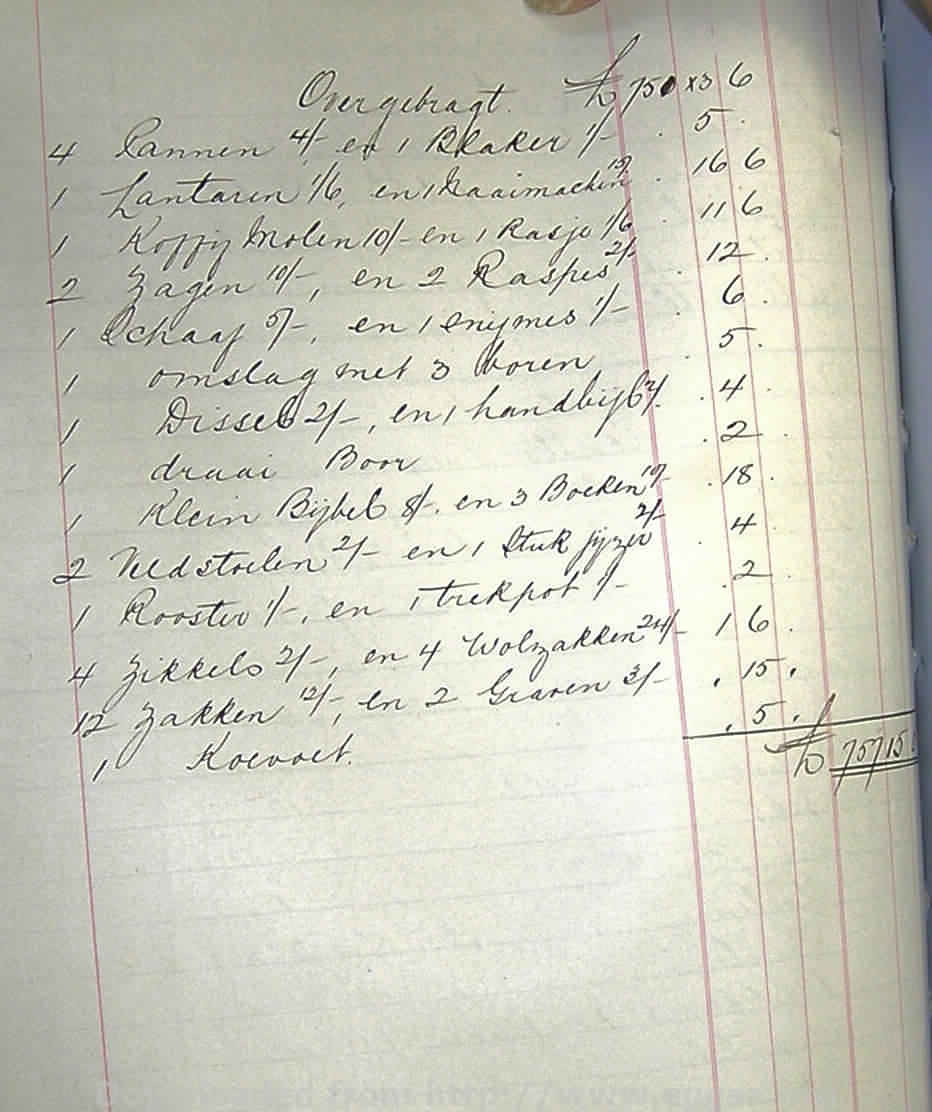 Overgebragt. £ 750 x3 6
4 Pannen 4/- en 1 Blaker 1/- . 5 .
1 Lantaren 1/6, en 1 Naaimachien 15/ . 16 6
1 Koffij Molen 10/- en 1 Rasje 1/6 . 11 6
2 Zagen 10/-, en 2 Raspes 2/- . 12 .
1 Schaaf 5/-, en 1 snijmes 1/- . 6 .
1 omslag met 3 boren . 5 .
1 Dissel 2/-, en 1 handbijl 2/. . 4 .
1 draai Boor . 2 .
1 Klein Bijbel 8/-. en 3 Boeken 10/- . 18 .
2 Veldstoelen 2/- en 1 Stuk 2/- . 4
1 Rooster 1/-, en 1 trekpot 1/- . 2 .
4 Zikkels 2/-, en 4 Wolzakken 24/- 1 6 .
12 Zakken 12/-, en 2 Graven 3/- . 15 .
1 Koevoet. . 5 .
£ 757 15